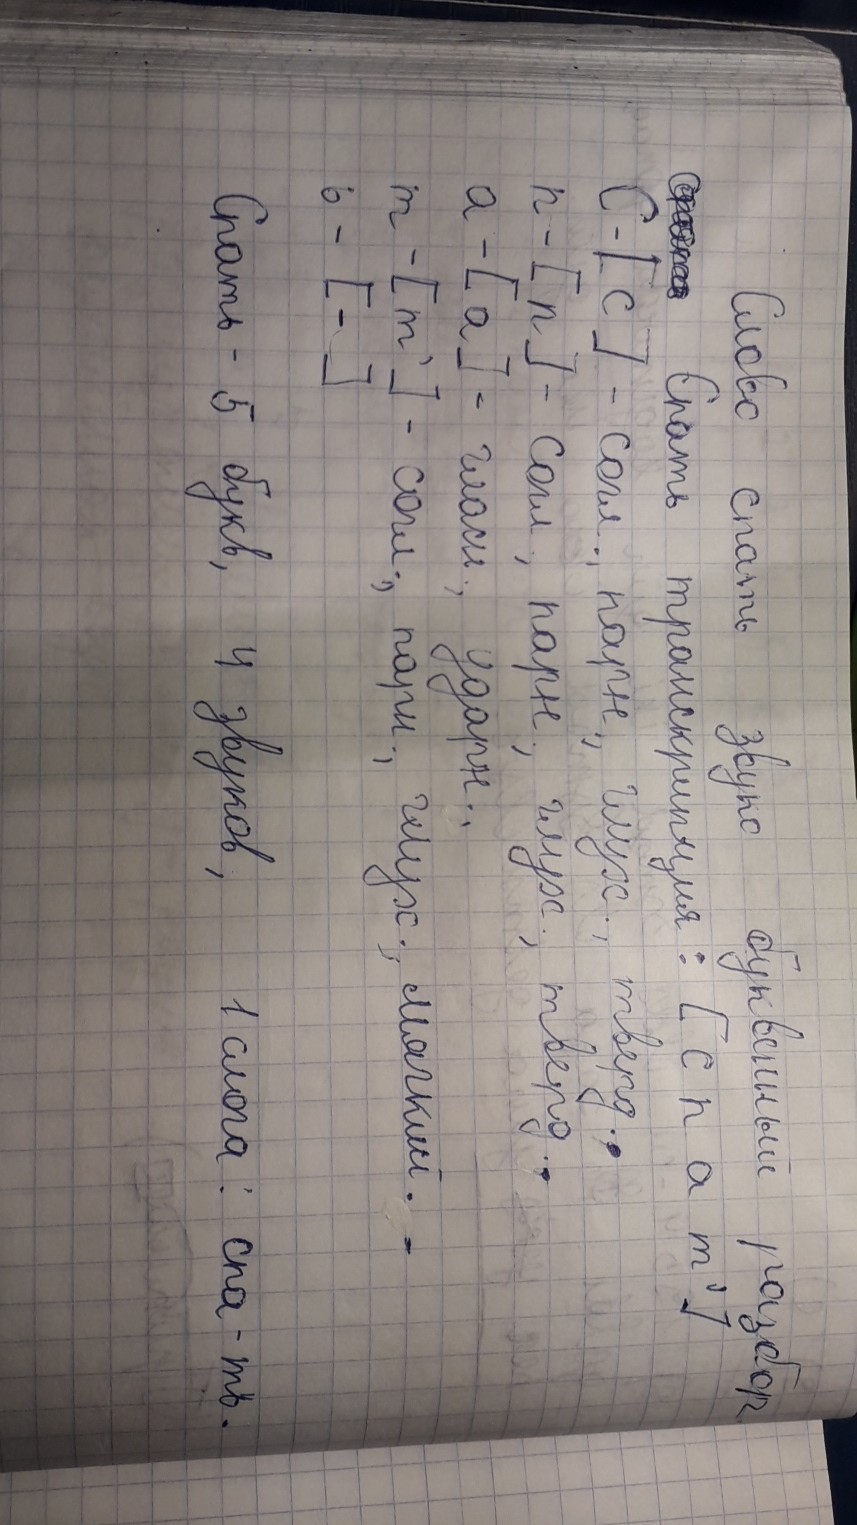 Слово спать звуко буквенный разбор
Спать транскрипция: [спат']
С - [с] - согл., парн., глух., тверд.,
п - [п] - согл., парн., глух., тверд.,
а - [а] - гласн., ударн.,
т - [т'] - согл., парн., глух., мягкий. -
ь - [-]
Спать - 5 букв, 4 звуков, 1 слога: спа-ть.